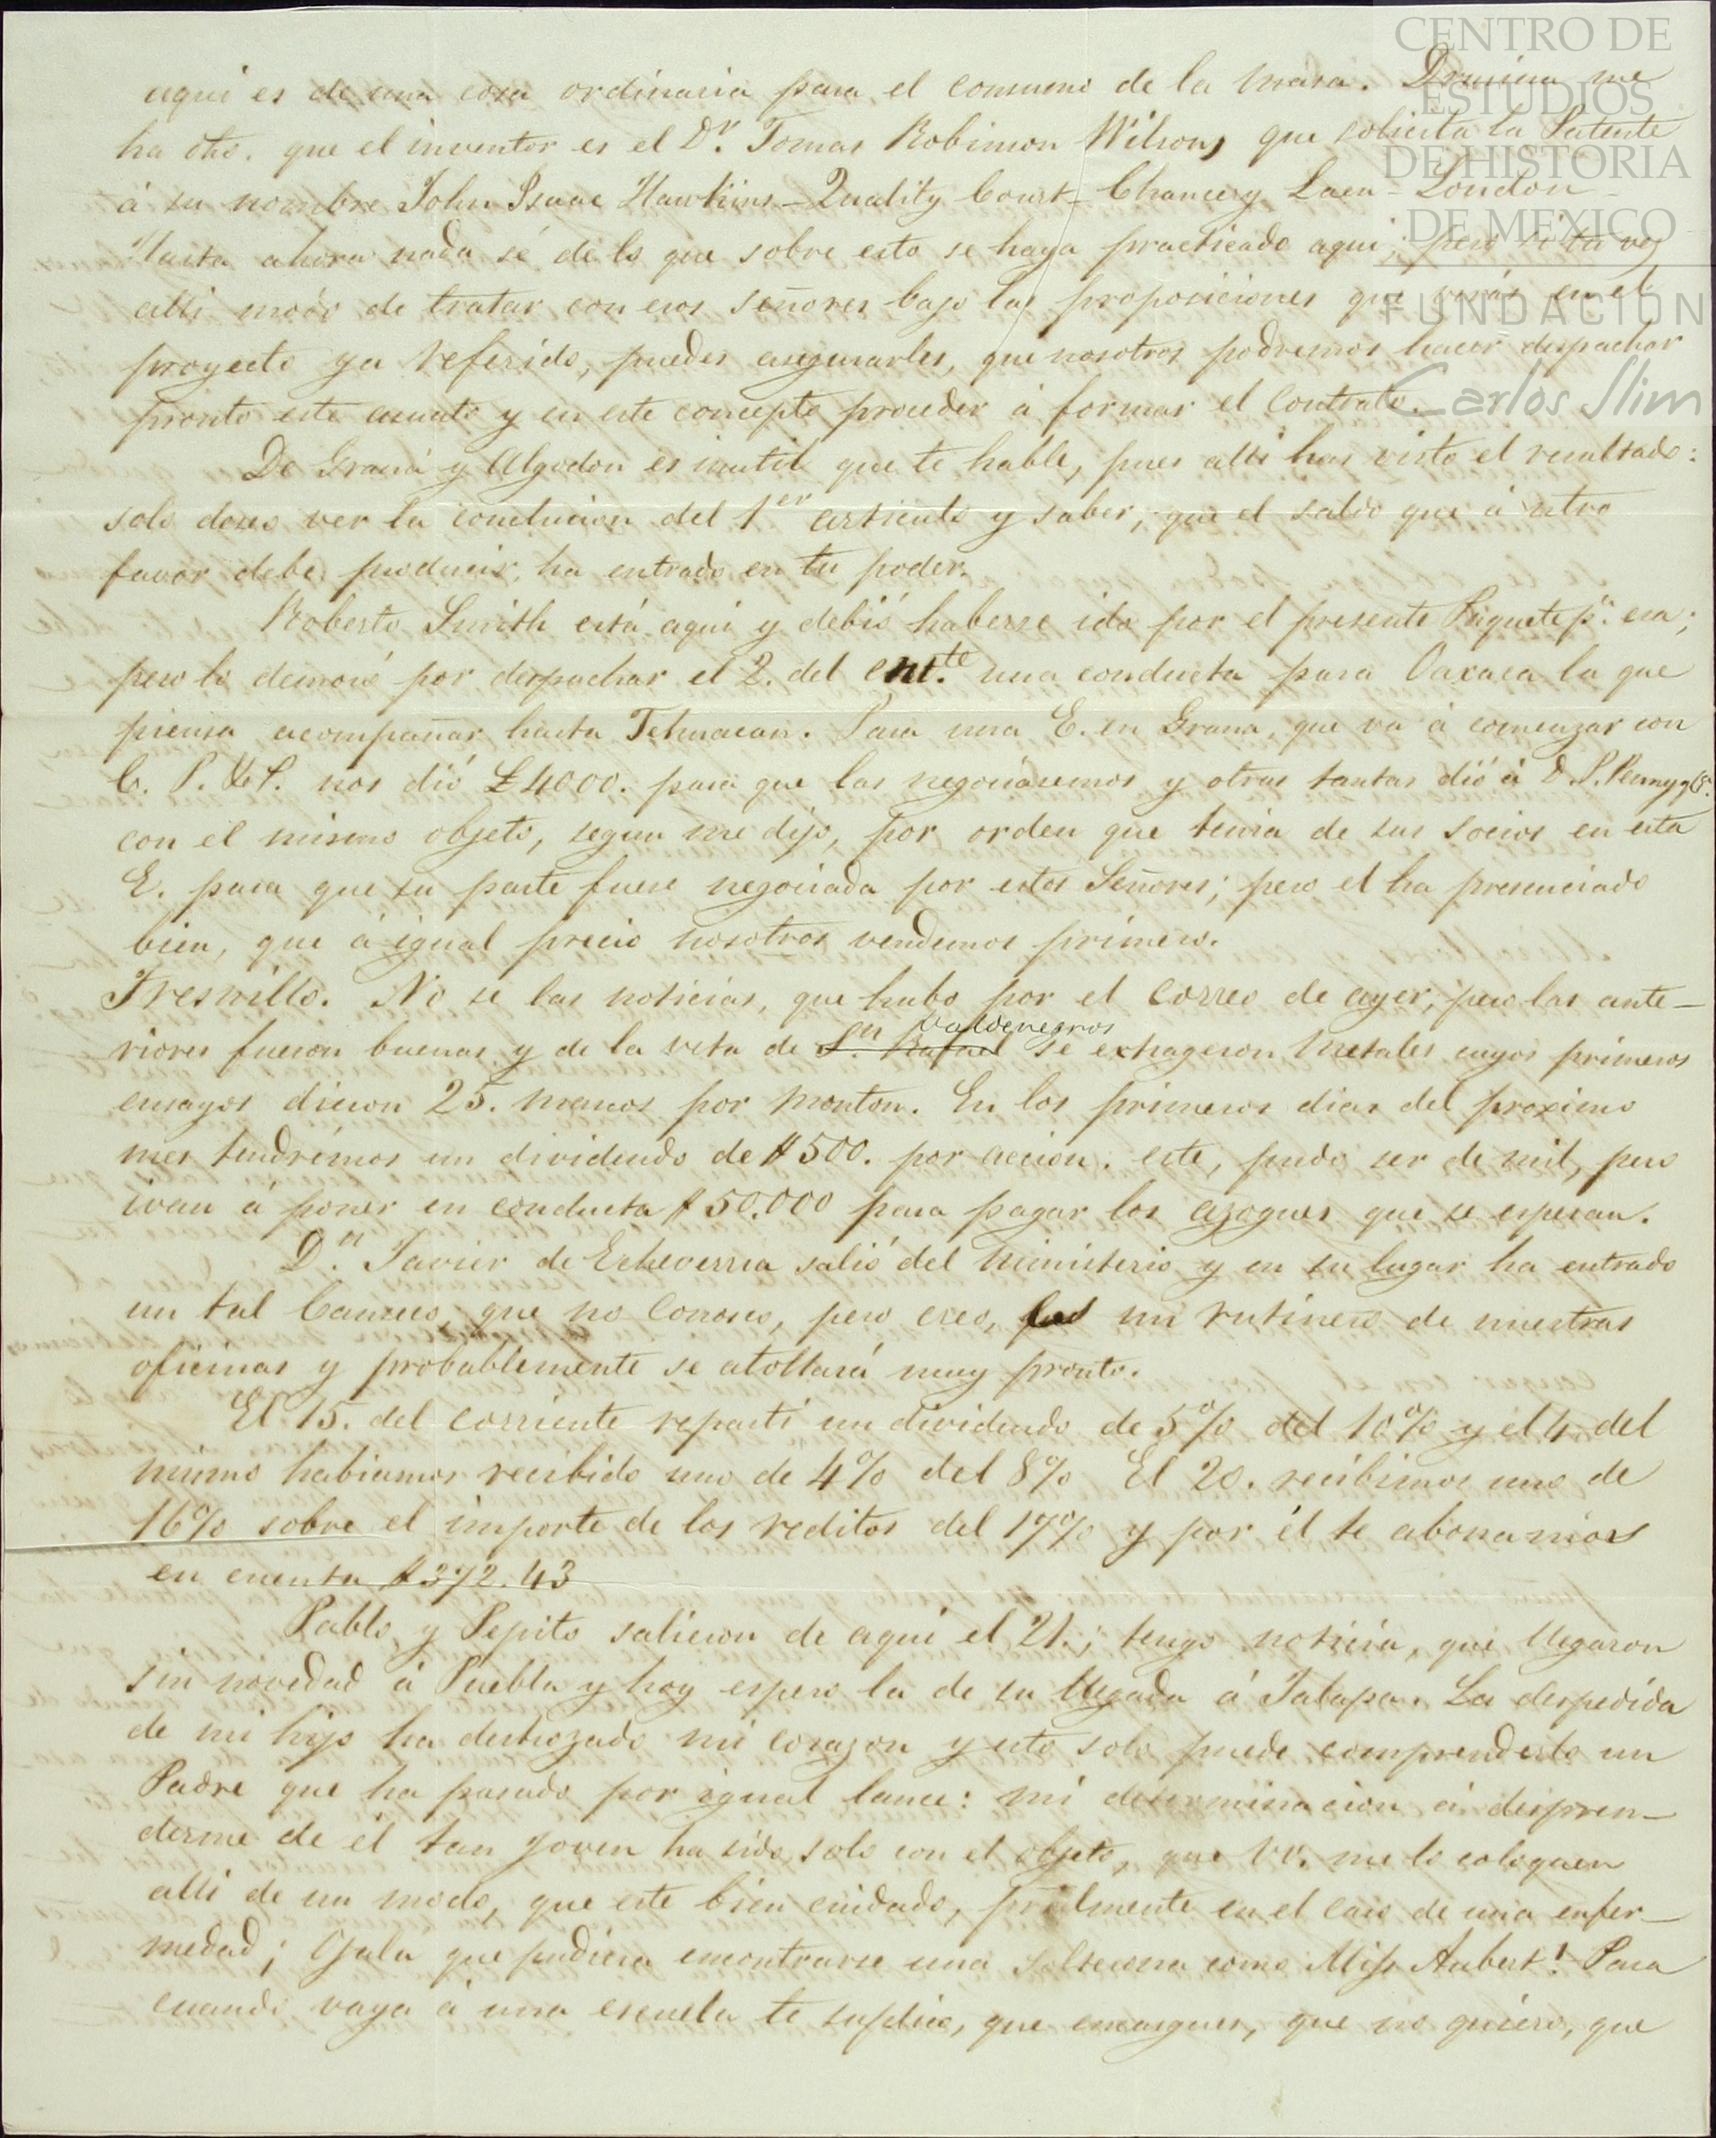 CENTRO DE
ESTUDIOS
DE HISTORIA
DE MEXICO
FUNDACIÓN
Carlos Slim
aqui es de una cosa ordinaria para el consumo de la masa. Drusina me
ha dho. que el inventor es el Dr. Tomas Robinson Wilson, que solicita la Patente
á su nombre John Isaac Hawkins - Quality Court - Chancery Laen - London -
Hasta ahora nada sé de lo que sobre esto se haya practicado aqui; pero si tu ves
alli modo de tratar con esos Señores bajo las proposiciones que verás en el
proyecto ya referido, puedes asegurarles, que nosotros podremos hacer despachar
pronto este asunto y en este concepto proceder á formar el Contrato.
De Grana y Algodon es inutil que te hable, pues alli has visto el resultado:
solo deseo ver la conclucion del 1er articulo y saber, que el saldo que á ntro
favor debe producir, ha entrado en tu poder.
Roberto Smith está aqui y debió haberse ido por el presente Paquete pa. esa;
pero lo demoró por despachar el 2. del cnte. una conducta para Oaxaca la que
piensa acompañar hasta Tehuacan. Para una E. en Grana, que va á comenzar con
C. P. & S. nos dió £4000. para que las negociaremos y otras tantas dió á D. P. Penny y Ca.
con el mismo objeto, segun me dijo, por orden que tenia de sus socios en esta
E. para que su parte fuese negociada por estos Señores; pero el ha presenciado
bien, que á igual precio nosotros vendemos primero.
Fresnillo. No se las noticias, que hubo por el correo de ayer, pero las ante-
riores fueron buenas y de la veta de Sn. Rafael Valdenegros se extrageron metales cuyos primeros
ensayos dieron 25. marcos por monton. En los primeros dias del proximo
mes tendrémos un dividendo de $500. por accion. este, pudo ser de mil, pero
ivan á poner en conducta $50.000 para pagar los azogues que se esperan.
Dn. Javier de Echeverria salió del Ministerio y en su lugar ha entrado
un tal Canseco, que no conosco, pero creo, un rutinero de nuestras
oficinas y probablemente se atollará muy pronto.
El 15. del corriente repartí un dividendo de 5% del 10% y el 4 del
mismo habiamos recibido uno de 4% del 8% El 20. recibimos uno de
16% sobre el importe de los reditos del 17% y por él te abonamos
en cuenta $372.43
Pablo y Pepito salieron de aqui el 21.; tengo noticia, que llegaron
sin novedad á Puebla y hoy espero la de su llegada á Jalapa. La despedida
de mi hijo ha destrozado mi corazon y esto solo puede comprenderlo un
Padre que ha pasado por igual lance: mi determinacion á despren-
derme de él tan joven ha sido solo con el objeto, que VV. me lo coloquen
alli de un modo, que este bien cuidado, pralmente en el caso de una enfer-
medad; Ojalá que pudiera encontrarse una solterona como Miss Aubert! Para
cuando vaya á una escuela te suplico, que encargues, que no quiero, que